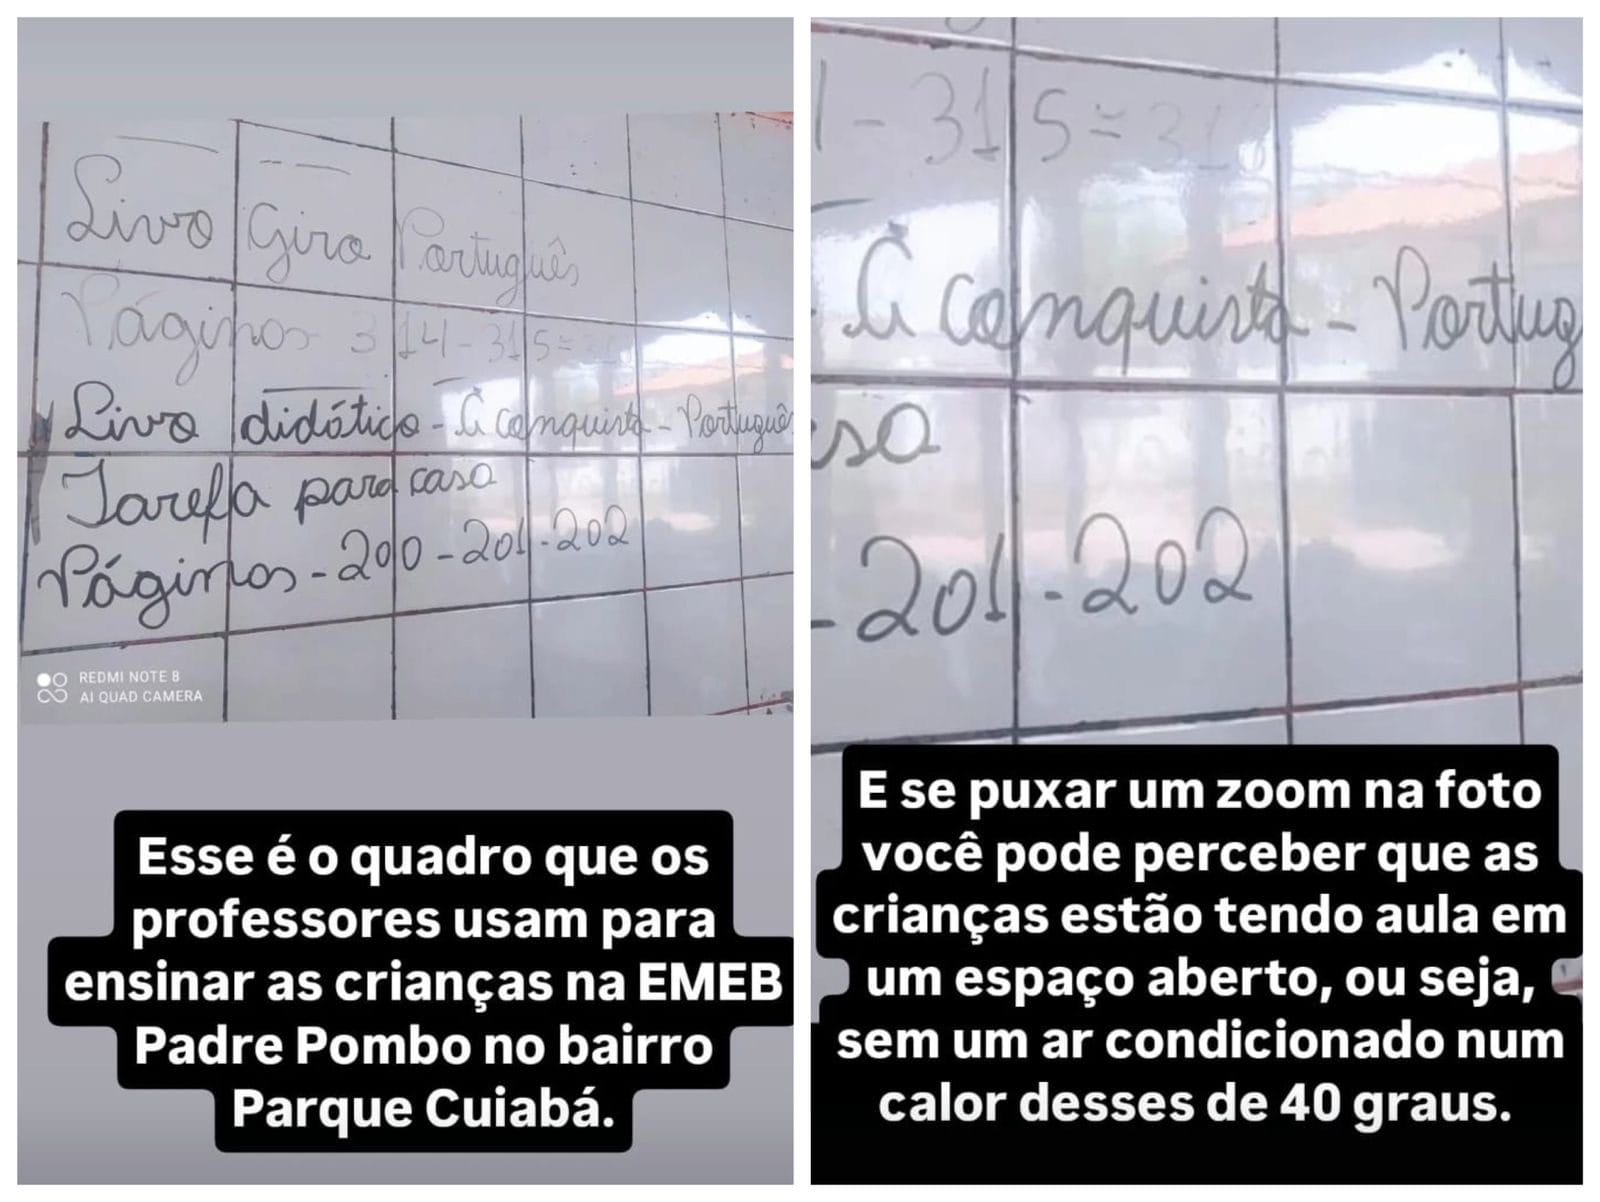 Livro Giro Português
Páginas 314 - 315 =
Livro didático - A conquista - Português
Tarefa para casa
Páginas - 200 - 201 - 202
REDMI NOTE 8
AI QUAD CAMERA
Esse é o quadro que os
professores usam para
ensinar as crianças na EMEB
Padre Pombo no bairro
Parque Cuiabá.
1 - 315 =
A conquista - Portug
sa
- 201 - 202
E se puxar um zoom na foto
você pode perceber que as
crianças estão tendo aula em
um espaço aberto, ou seja,
sem um ar condicionado num
calor desses de 40 graus.